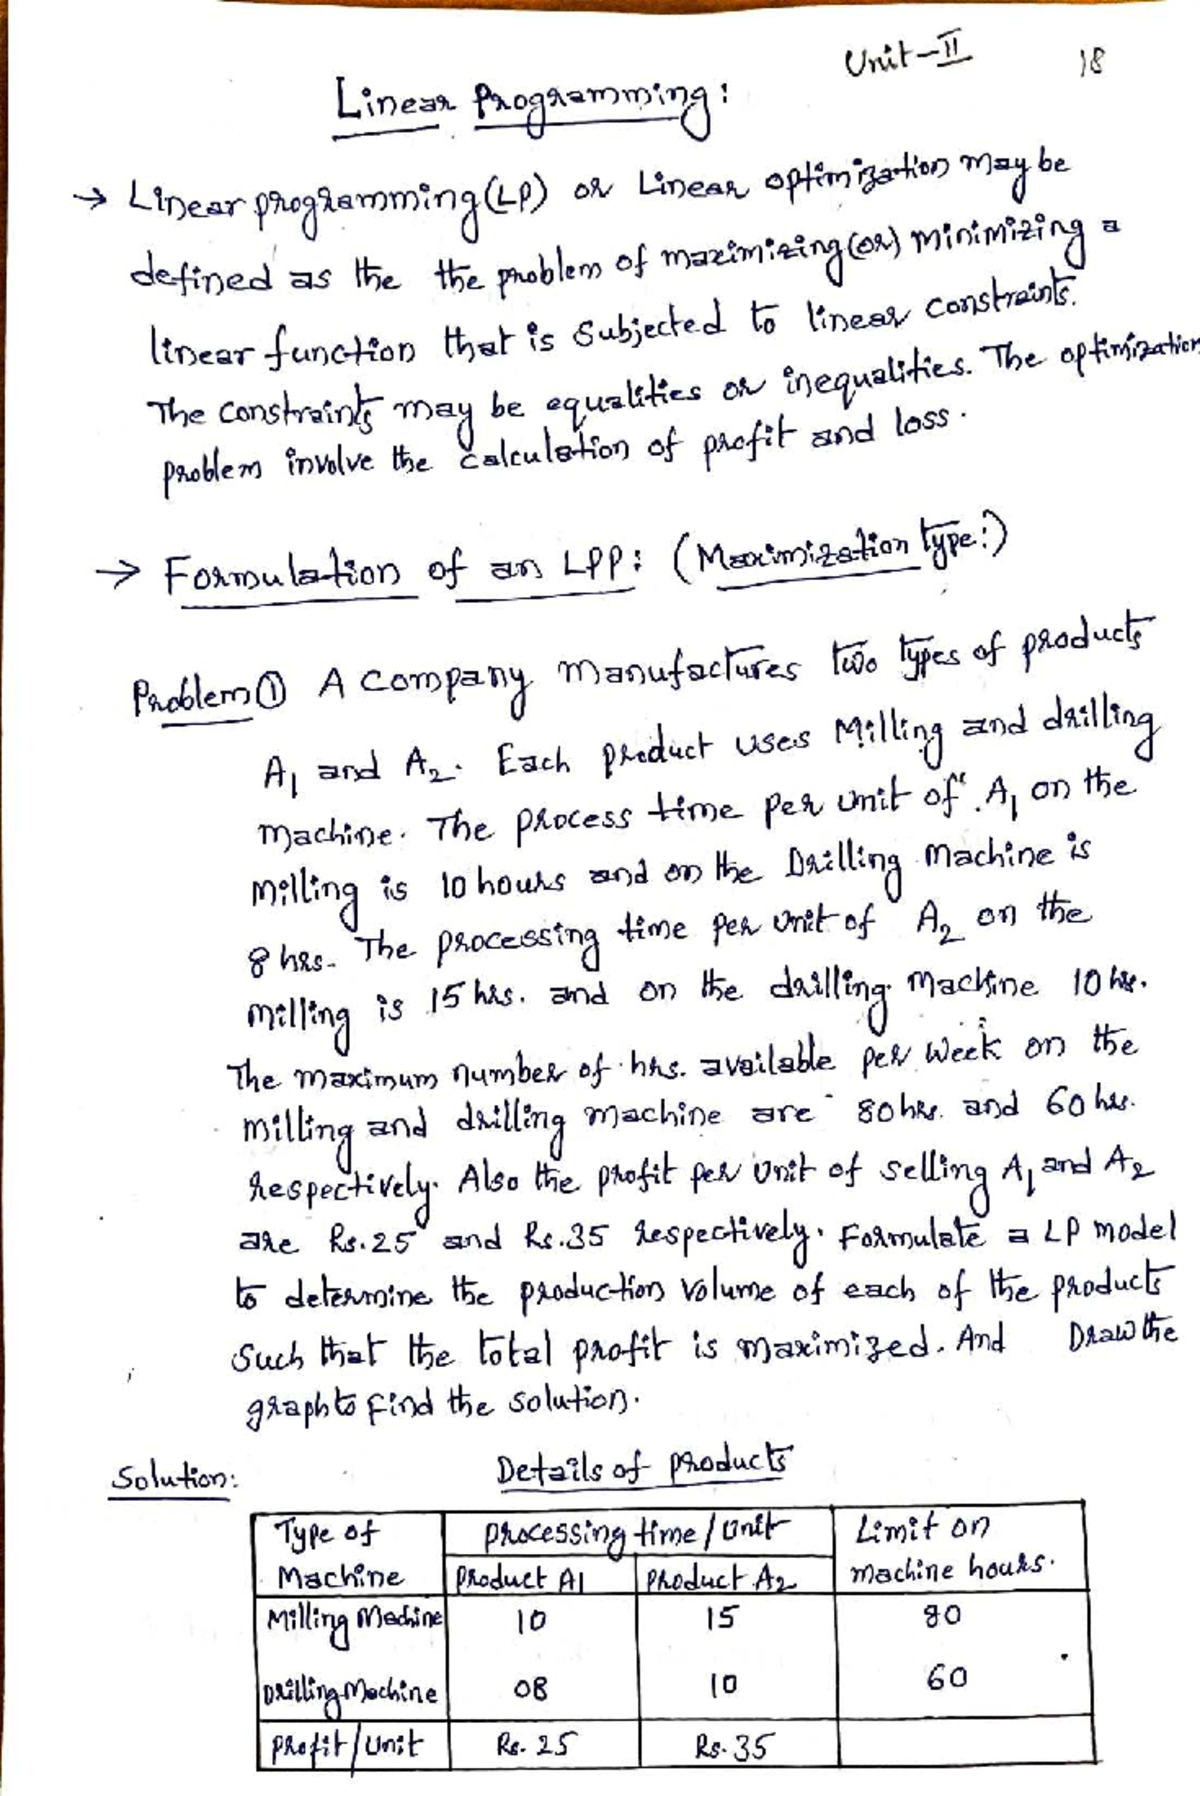 Unit-II 18
Linear Programming:
→ Linear programming (LP) or Linear optimization may be
defined as the the problem of maximizing (or) minimizing a
linear function that is subjected to linear constraints.
The constraints may be equalities or inequalities. The optimization
problem involve the calculation of profit and loss.
→ Formulation of an LPP: (Maximization type:)
Problem ① A company manufactures two types of products
A1 and A2. Each product uses Milling and drilling
machine. The process time per unit of A1 on the
milling is 10 hours and on the Drilling machine is
8 hrs. The processing time per unit of A2 on the
milling is 15 hrs. and on the drilling machine 10 hr.
The maximum number of hrs. available per week on the
milling and drilling machine are 80 hrs. and 60 hrs.
respectively. Also the profit per unit of selling A1 and A2
are Rs.25 and Rs.35 respectively. Formulate a LP model
to determine the production volume of each of the products
such that the total profit is maximized. And Draw the
graph to find the solution.
Solution: Details of products
Type of Machine | processing time/unit | Limit on machine hours.
product A1 | product A2
Milling Machine 10 15 80
Drilling Machine 08 10 60
Profit/Unit Rs. 25 Rs. 35